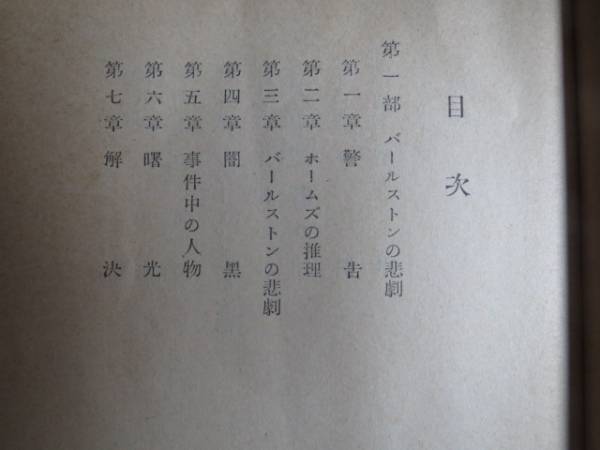 目次
第一部 バールストンの悲劇
第一章 警告
第二章 ホームズの推理
第三章 バールストンの悲劇
第四章 闇黒
第五章 事件中の人物
第六章 曙光
第七章 解決